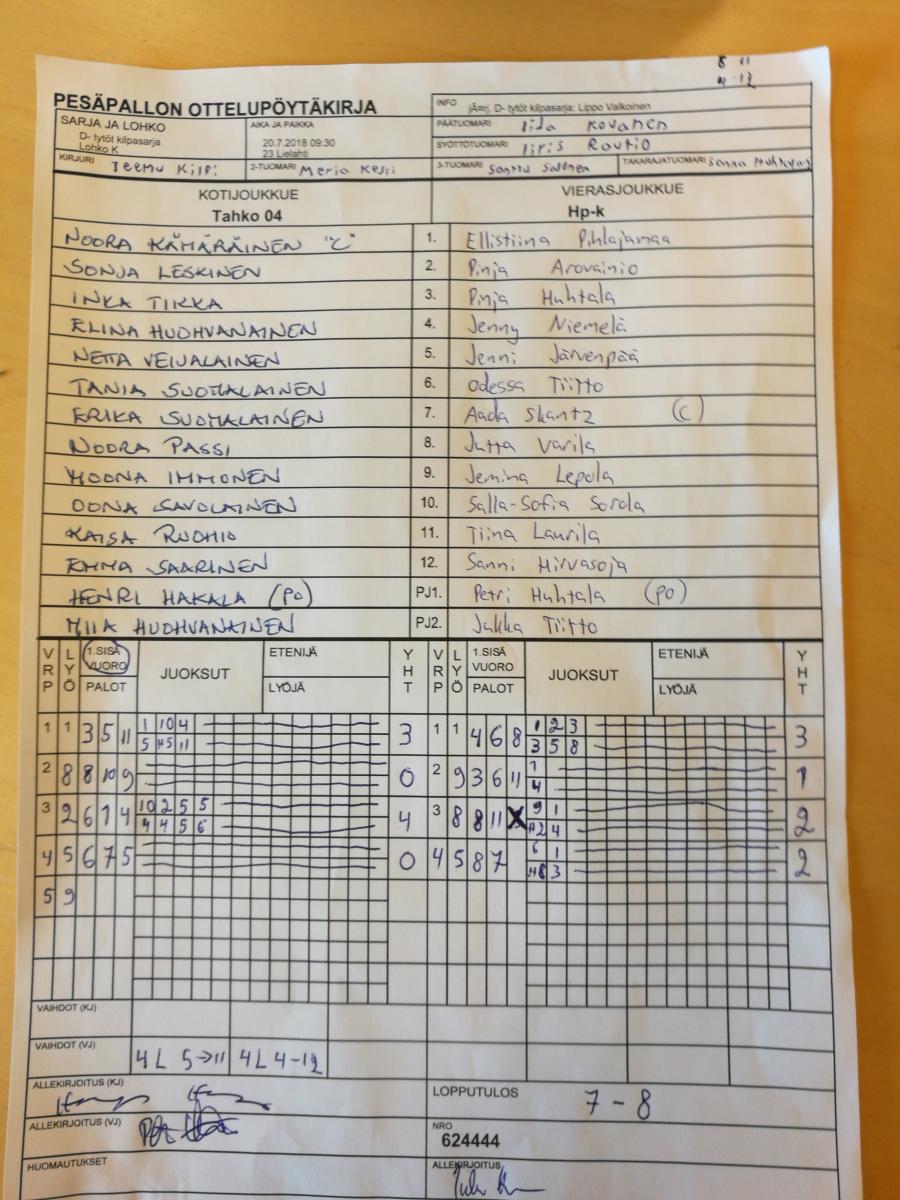 8 11
4 12
PESÄPALLON OTTELUPÖYTÄKIRJA
INFO jÄ=rj. D- tytöt kilpasarja: Lippo Valkoinen
SARJA JA LOHKO
D- tytöt kilpasarja
Lohko K
AIKA JA PAIKKA
20.7.2018 09:30
23 Lielahti
PÄÄTUOMARI Iida Kovanen
SYÖTTÖTUOMARI Iiris Rautio
KIRJURI Teemu Kilpi
2-TUOMARI Merja Kesti
3-TUOMARI Santtu
TAKARAJATUOMARI Sanna
KOTIJOUKKUE
Tahko 04
VIERASJOUKKUE
Hp-k
NOORA KÄMÄRÄINEN "C" 1. Ellistiina Pihlajamaa
SONJA LESKINEN 2. Pinja Arovainio
INKA TIKKA 3. Pinja Huhtala
ELINA HUOHVANAINEN 4. Jenny Niemelä
NETTA VEIJALAINEN 5. Jenni Järvenpää
TANJA SUOMALAINEN 6. Odessa Tiitto
ERIKA SUOMALAINEN 7. Aada Skantz (C)
NOORA PASSI 8. Jutta Varila
MOONA IMMONEN 9. Jemina Lepola
OONA SAVOLAINEN 10. Salla-Sofia Sorola
KAISA RUOHO 11. Tiina Laurila
EMMA SAARINEN 12. Sanni Hirvasoja
HENRI HAKALA (PO) PJ1. Petri Huhtala (PO)
MIIA HUOHVANAINEN PJ2. Jukka Tiitto
VRP LYÖ 1.SISÄ VUORO PALOT JUOKSUT ETENIJÄ LYÖJÄ YHT VRP LYÖ 1.SISÄ VUORO PALOT JUOKSUT ETENIJÄ LYÖJÄ YHT
1 1 3 5 11 1 10 4 3 1 1 4 6 8 1 2 3 3
5 #5 11 3 5 8
2 8 8 10 9 0 2 9 3 6 11 1 1
4
3 2 6 7 4 10 2 5 5 4 3 8 8 11 X 9 1 2
4 4 5 6 #2 4
4 5 6 7 5 0 4 5 8 7 6 1 2
3
5 9
VAIHDOT (KJ)
VAIHDOT (VJ) 4L 5→11 4L 4-12
ALLEKIRJOITUS (KJ)
LOPPUTULOS 7 - 8
ALLEKIRJOITUS (VJ)
NRO
624444
HUOMAUTUKSET
ALLEKIRJOITUS